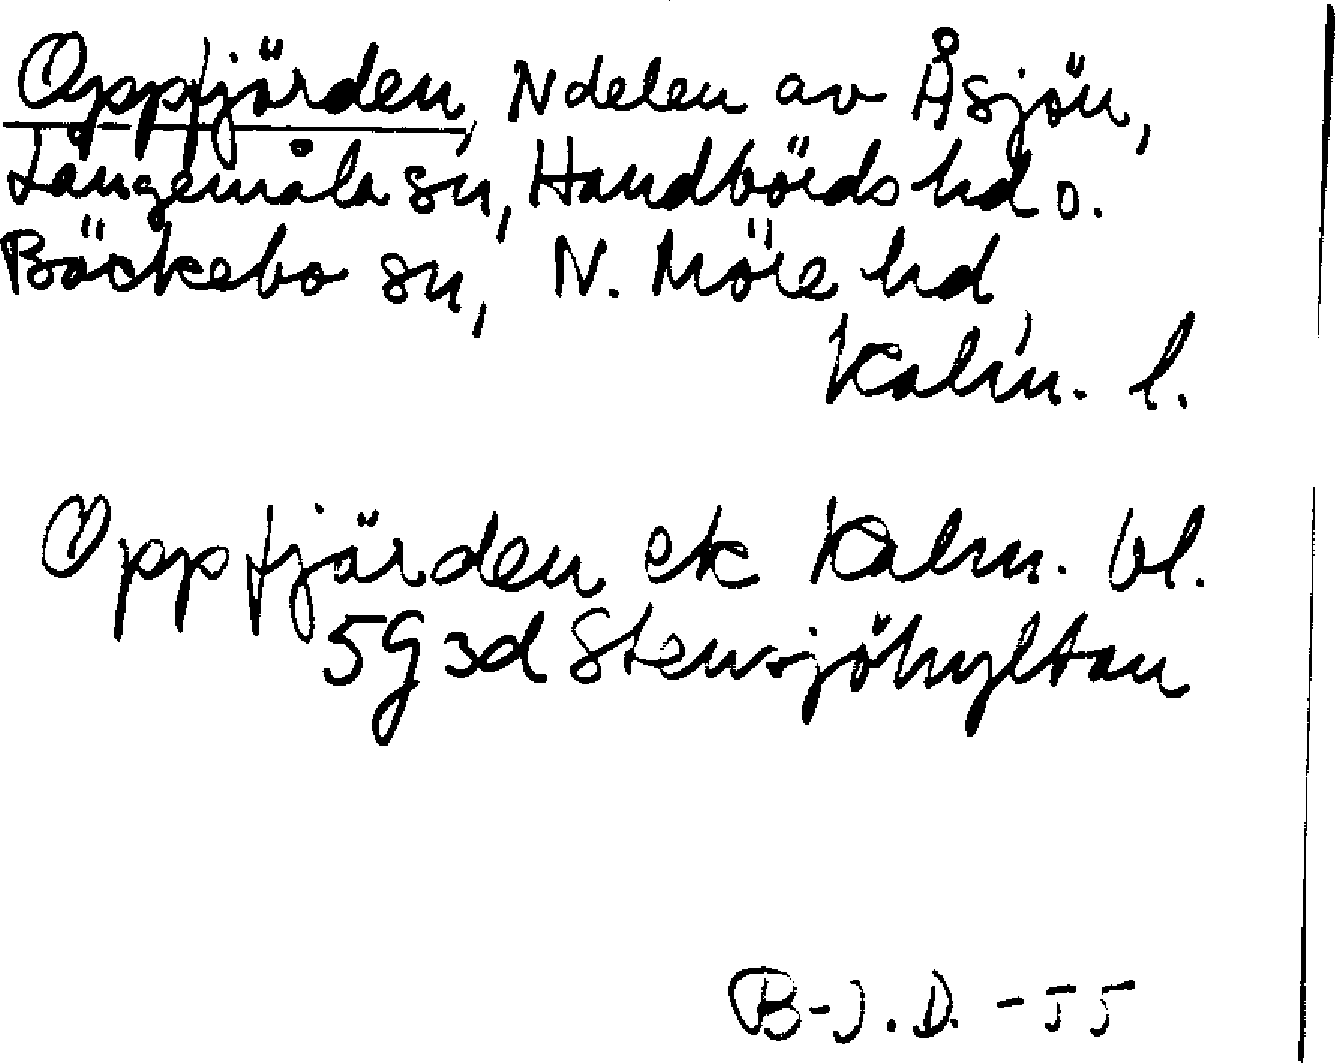 Oppfjärden, N delen av Åsjön,
Långemåla sn, Handbörds hd o.
Bäckebo sn, N. Möre hd,
Kalm. l.
Oppfjärden ek Kalm. bl.
5G3d Stensjöhyltan
B-J. D. -55